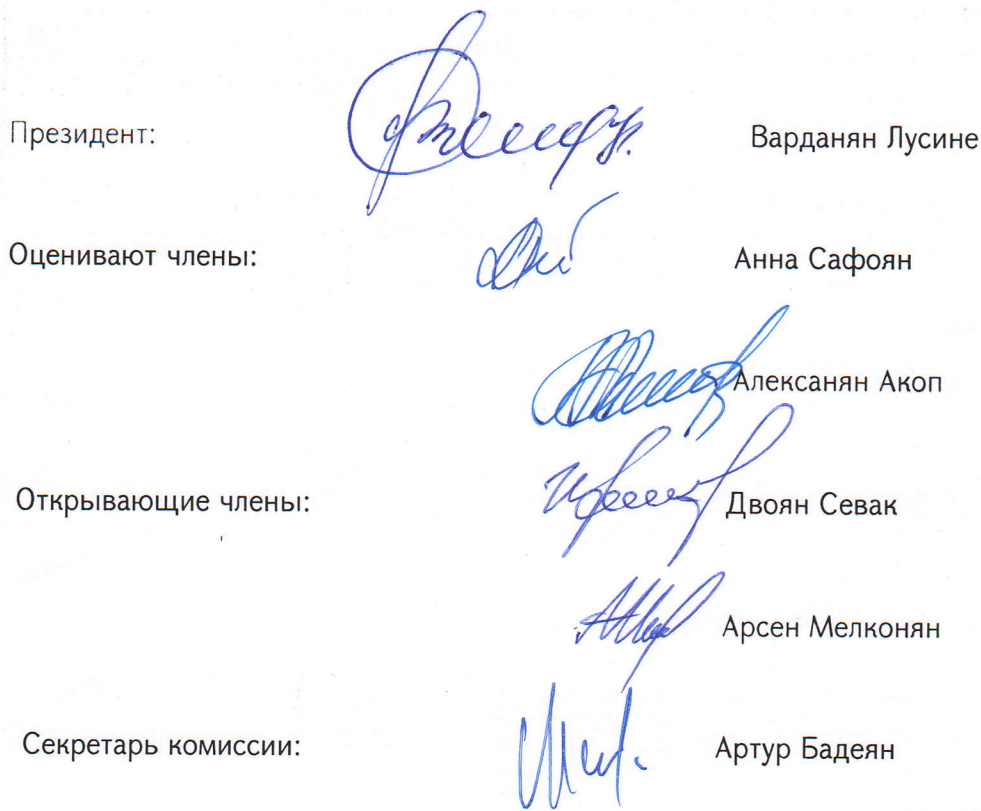 Президент: Варданян Лусине
Оценивают члены: Анна Сафоян
Алексанян Акоп
Открывающие члены: Двоян Севак
Арсен Мелконян
Секретарь комиссии: Артур Бадеян